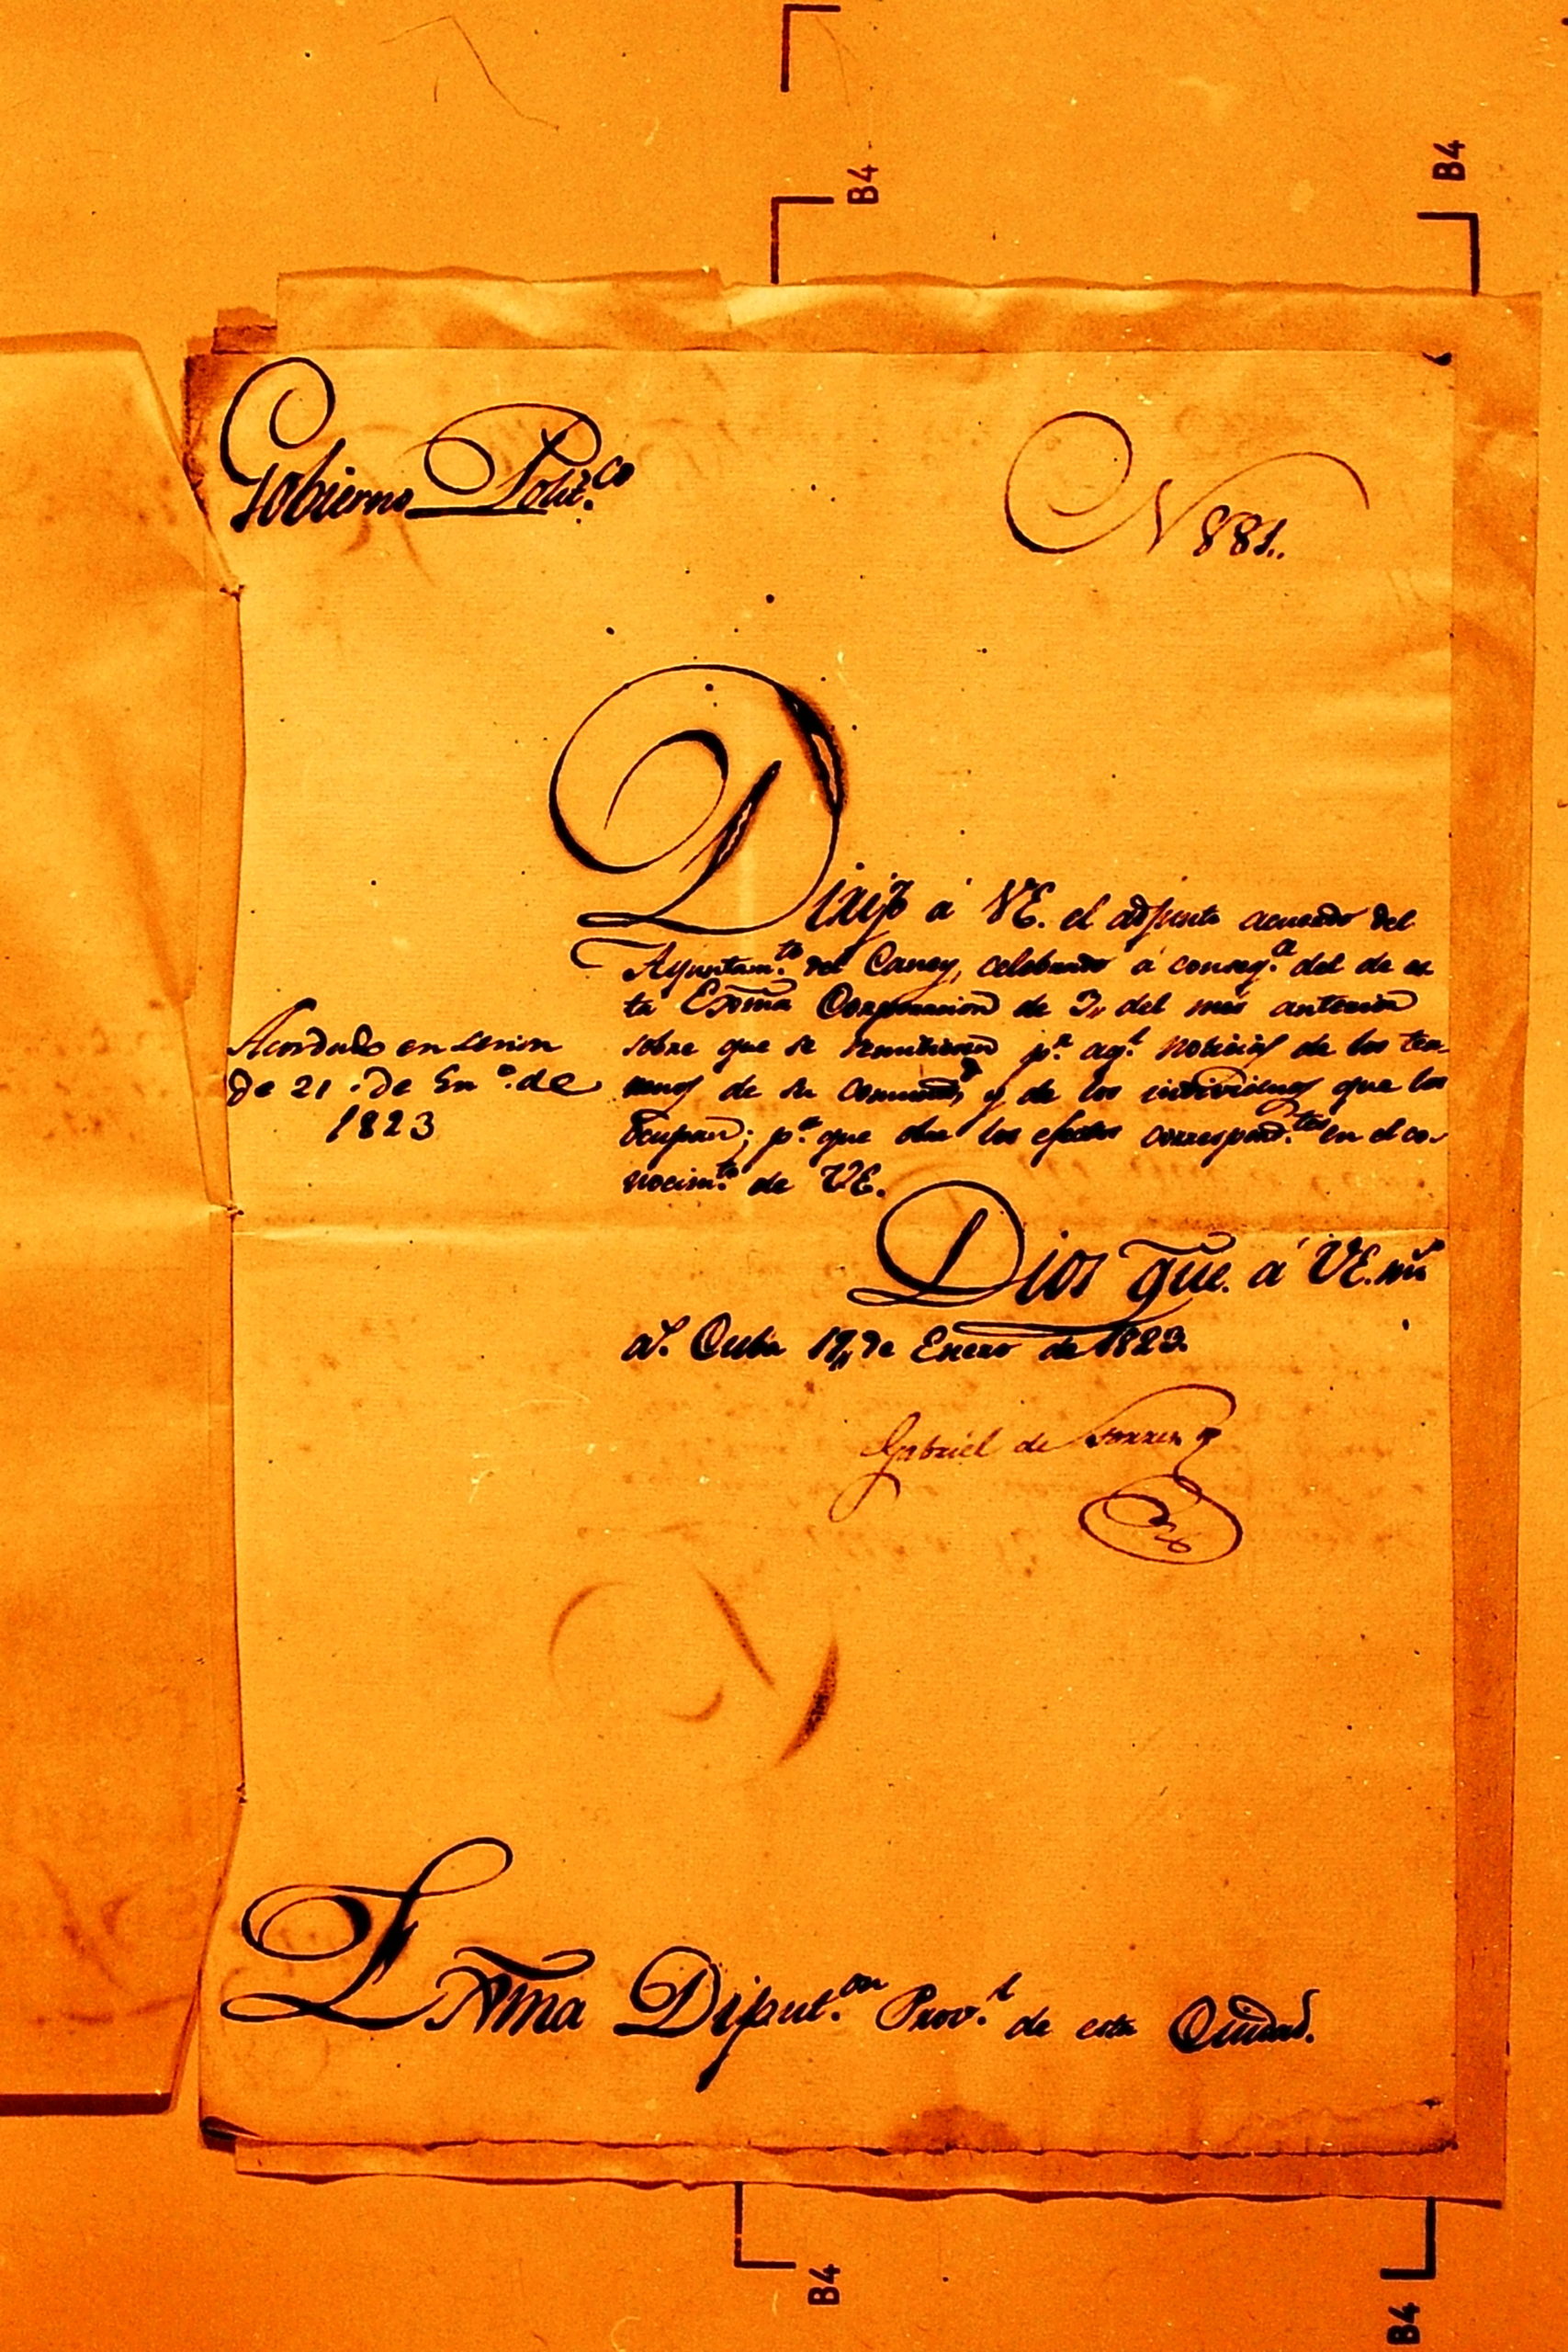 B4
B4
Gobierno Polit.co
N 881..
Dirijo á VE. el adjunto acuerdo del
Ayuntam.to del Caney, celebrado á conseq.a del de es
ta Exma Corporacion de 3,, del mes anterior
sobre que se remitieran p.a aq.l noticias de los ter-
renos de su comunid.d y de los individuos que los
ocupan; p.a que obre los efectos correspond.tes en el co-
nocim.to de VE.
Acordado en sesion
de 21 de En.o de
1823
Dios gue. á VE. ms
as. Cuba 17,, de Enero de 1823.
Gabriel de Torres
Exma Diput.on Prov.l de esta Ciudad.
B4
B4